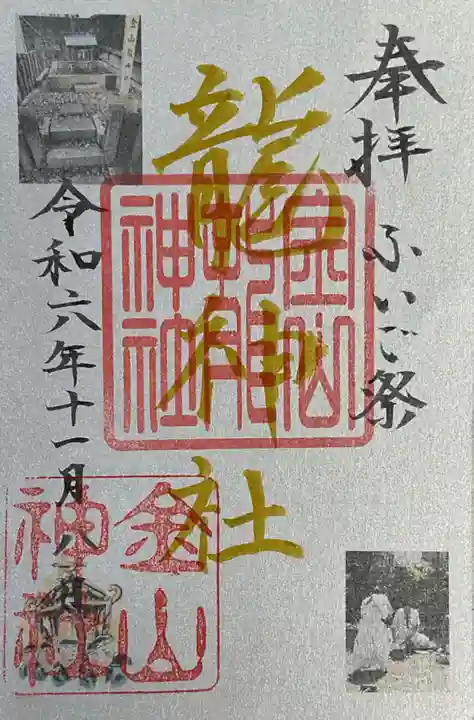 奉拝 ふいご祭
龍神社
令和六年十一月八日
金山神社